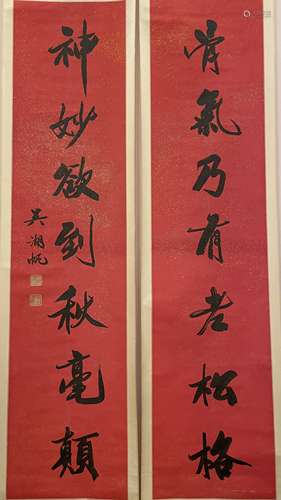 骨氣乃有老松格
神妙欲到秋毫顛
吳湖帆